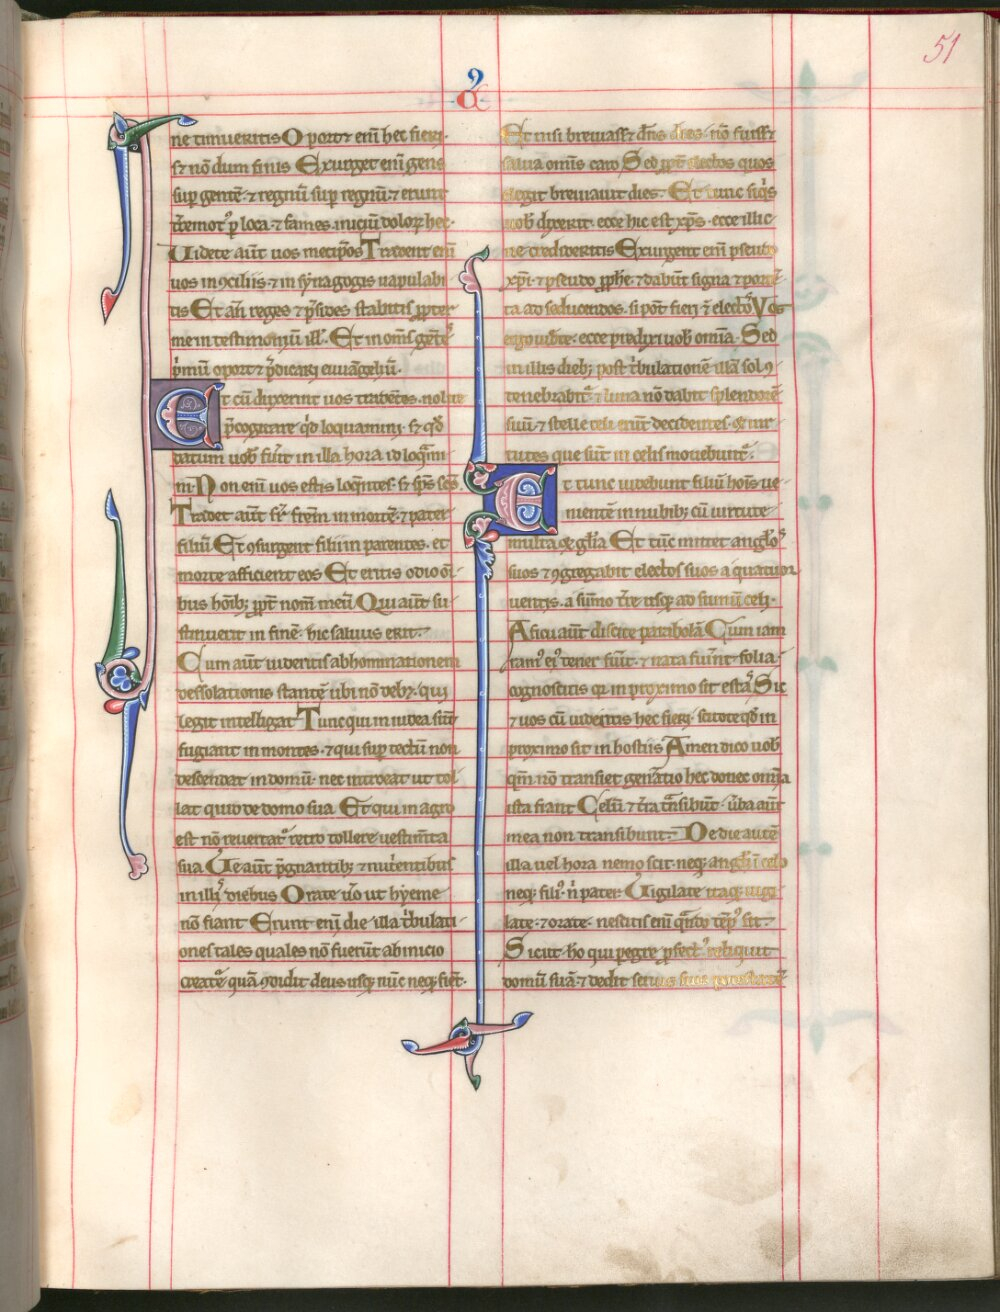 51
ne timueritis Oportꝫ eni̅ hec fieri·
sꝫ nō dum finis Exurget eni̅ gens
sup gente̅· ⁊ regnū sup regnū· ⁊ erunt
t̅remotꝰ p loca· ⁊ fames· iniciū doloꝝ hec·
Uidete aūt uos metip̄os Tradent eni̅
uos in ꝯciliis· ⁊ in sẏnagogis uapulabi
tis Et an̄ reges ⁊ p̄sides stabitis ꝓpter
me in testimoniū ill̓· Et in om̄s ge̅te̅s
p̓mū oportꝫ p̄dicari euuāgeliū·
Et cū duxerint uos tradentes· nolite
p̄cogitare q̓d loquamini· sꝫ qd̓
datum uob̓ fūit in illa hora id loq̓mi
ni· Non eni̅ uos estis loq̓ntes· sꝫ sp̄s sc̄s·
Tradet aūt fr̄· fr̄em in morte̅· ⁊ pater
filiū Et ꝯsurgent filii in parentes· et
morte afficient eos Et eritis odio oī
bus ho̅ib; ꝓpt̓ nom̄ meū Qui aūt su
stinuerit in fine̅· hic saluus erit·
Cum aūt uideritis abhominationem
dessolationis stante̅ ubi nō debꝫ· qui
legit intelligat Tunc qui in iudea su̅t
fugiant in montes· ⁊ qui sup tectū non
descendat in domū· nec introeat ut tol
lat quid de domo sua Et qui in agro
est nō reuertat᷑ retro tollere uestim̄ta
sua Ue aūt p̄gnantib; ⁊ nut̓entibus
in illiꝰ diebus Orate u̓o ut hẏeme
nō fiant Erunt eni̅ die illa t̓bulati
ones tales quales nō fuerūt ab inicio
creat᷑e quā ꝯdidit deus usq; nūc neq; fient·
Et nisi breuiass; dn̄s dies· nō fuiss;
salua omīs caro Sed ꝓpt̓ electos quos
elegit breuiauit dies· Et tunc siq̓s
uob̓ dixerit· ecce hic est xp̄s· ecce illic·
ne credideritis Exurgent eni̅ pseudo
xp̄i· ⁊ pseudo ꝓphe̅· ⁊ dabūt signa ⁊ porte̅
ta ad seducendos· si pōt fieri ⁊̅ electos Vos
ergo uidete· ecce predixi uob̓ omīa· Sed
in illis dieb; post t̓bulatione̅ illā sol ꝯ
tenebrabit᷑· ⁊ luna nō dabit splendore̅
suū· ⁊ stelle celi erūt decidentes· ⁊ uir
tutes que sūt in celis mouebunt᷑·
Et tunc uidebunt filiū ho̅is ue
niente̅ in nubib; cū uirtute
multa ⁊ gl̄ia Et tūc mittet anglo̅s
suos ⁊ ꝯgregabit electos suos a quatuor
uentis· a sūmo t̓re usq; ad sūmū celi·
A ficu aūt discite parabolā Cum iam
ramꝰ eiꝰ tener fūit· ⁊ nata fuint folia·
cognoscitis qr in proximo sit estas Sic
⁊ uos cū uideritis hec fieri· scitote qd̓ in
proximo sit in hostiis Amen dico uob̓
qm̄ nō transiet gen̄atio hec donec omīa
ista fiant Celū ⁊ t̓ra t̓nsibūt· u̓ba aūt
mea non transibunt· De die aute̅
illa uel hora nemo scit· neq; angli̅ i celo
neq; filiꝰ· n̓ pater· Uigilate itaq; uigi
late· ⁊ orate· nescitis eni̅ q̄ndo te̅pꝰ sit·
Sicut ho qui pegre ꝓfectꝰ reliquit
domū suā· ⁊ dedit seruis suis potestate̅